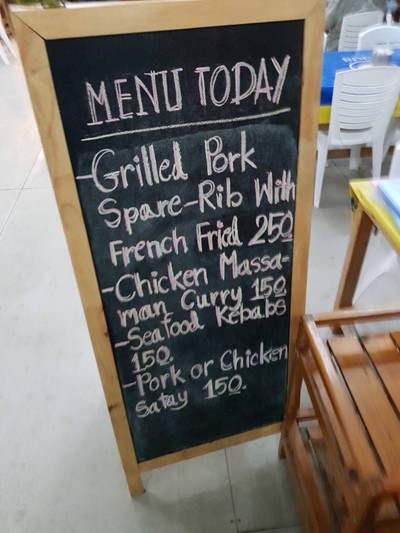 MENU TODAY
-Grilled Pork
Spare-Rib With
French Fried 250
-Chicken Massa-
man Curry 150.
-Seafood Kebabs
150.
-Pork or Chicken
Satay 150.